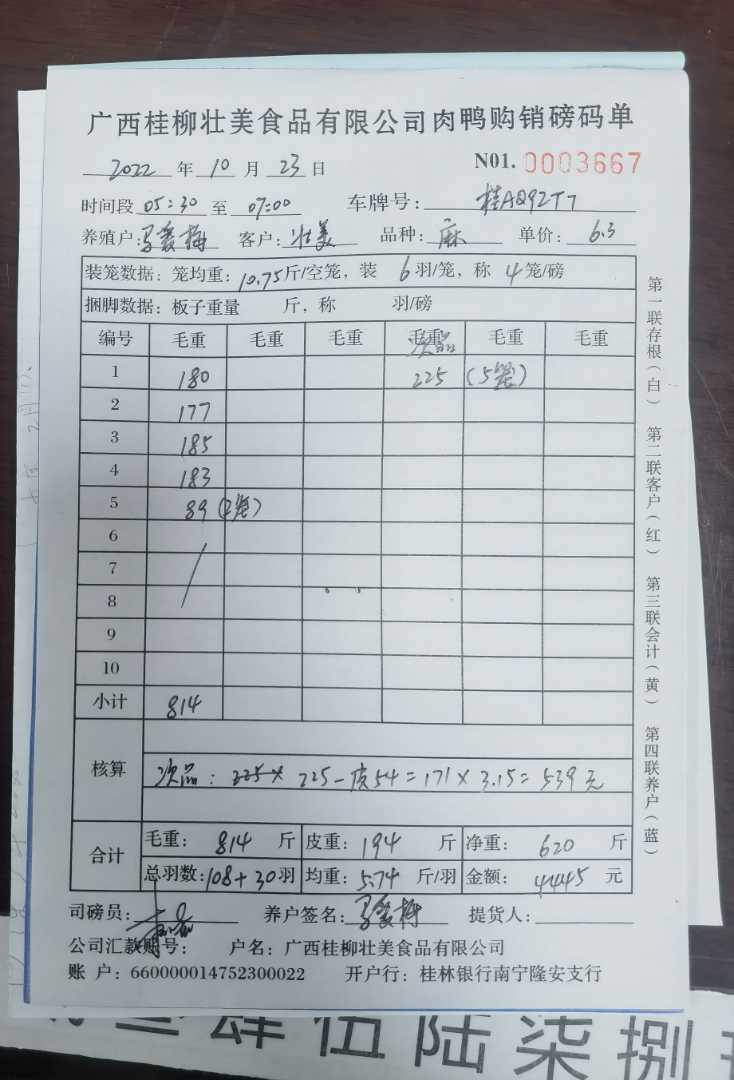 广西桂柳壮美食品有限公司肉鸭购销磅码单
2022 年 10 月 23 日 N01. 0003667
时间段 05:30 至 07:00 车牌号: 桂AQ9Z77
养殖户: 马爱梅 客户: 壮美 品种: 麻 单价: 6.3
装笼数据: 笼均重: 10.75斤/空笼, 装 6 羽/笼, 称 4 笼/磅
捆脚数据: 板子重量 斤, 称 羽/磅
编号 毛重 毛重 毛重 毛重 次品 毛重 毛重
1 180 225 (5笼)
2 177
3 185
4 183
5 89 (2笼)
6
7
8
9
10
小计 814
核算
次品: 225 × 225 - 皮54 = 171 × 3.15 = 539 元
合计
毛重: 814 斤 皮重: 194 斤 净重: 620 斤
总羽数: 108+30羽 均重: 5.74 斤/羽 金额: 4445 元
司磅员: 养户签名: 马爱梅 提货人:
公司汇款账号: 户名: 广西桂柳壮美食品有限公司
账 户: 660000014752300022 开户行: 桂林银行南宁隆安支行
第一联存根(白) 第二联客户(红) 第三联会计(黄) 第四联养户(蓝)
叁肆伍陆柒捌